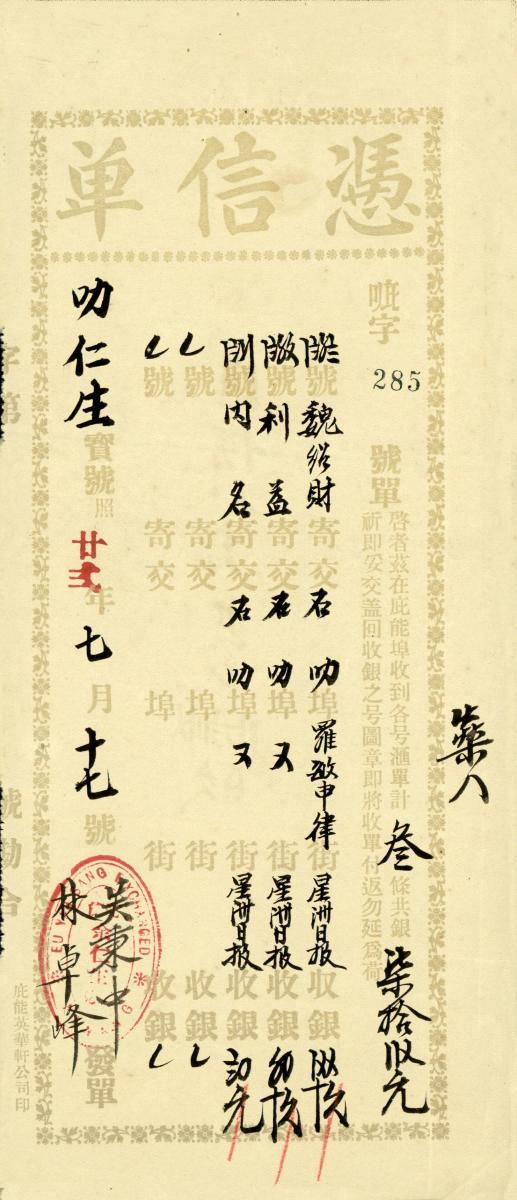 憑信单
㕭字
285
號單
啓者茲在庇能埠收到各号滙單計叁條共銀柒拾
祈即妥交盖回收銀之号圖章即將收單付返勿延爲荷
號魏紹財寄交石叻埠羅敏申律街星洲日报收銀
號利益寄交石叻埠又街星洲日报收銀
號内名寄交石叻埠又街星洲日报收銀
號寄交埠街收銀
號寄交埠街收銀
叻仁生寶號照廿年七月十七號發單
吴秉中
林卓峰
EXCHANGED
字第
號勘合
庇能英華軒公司印